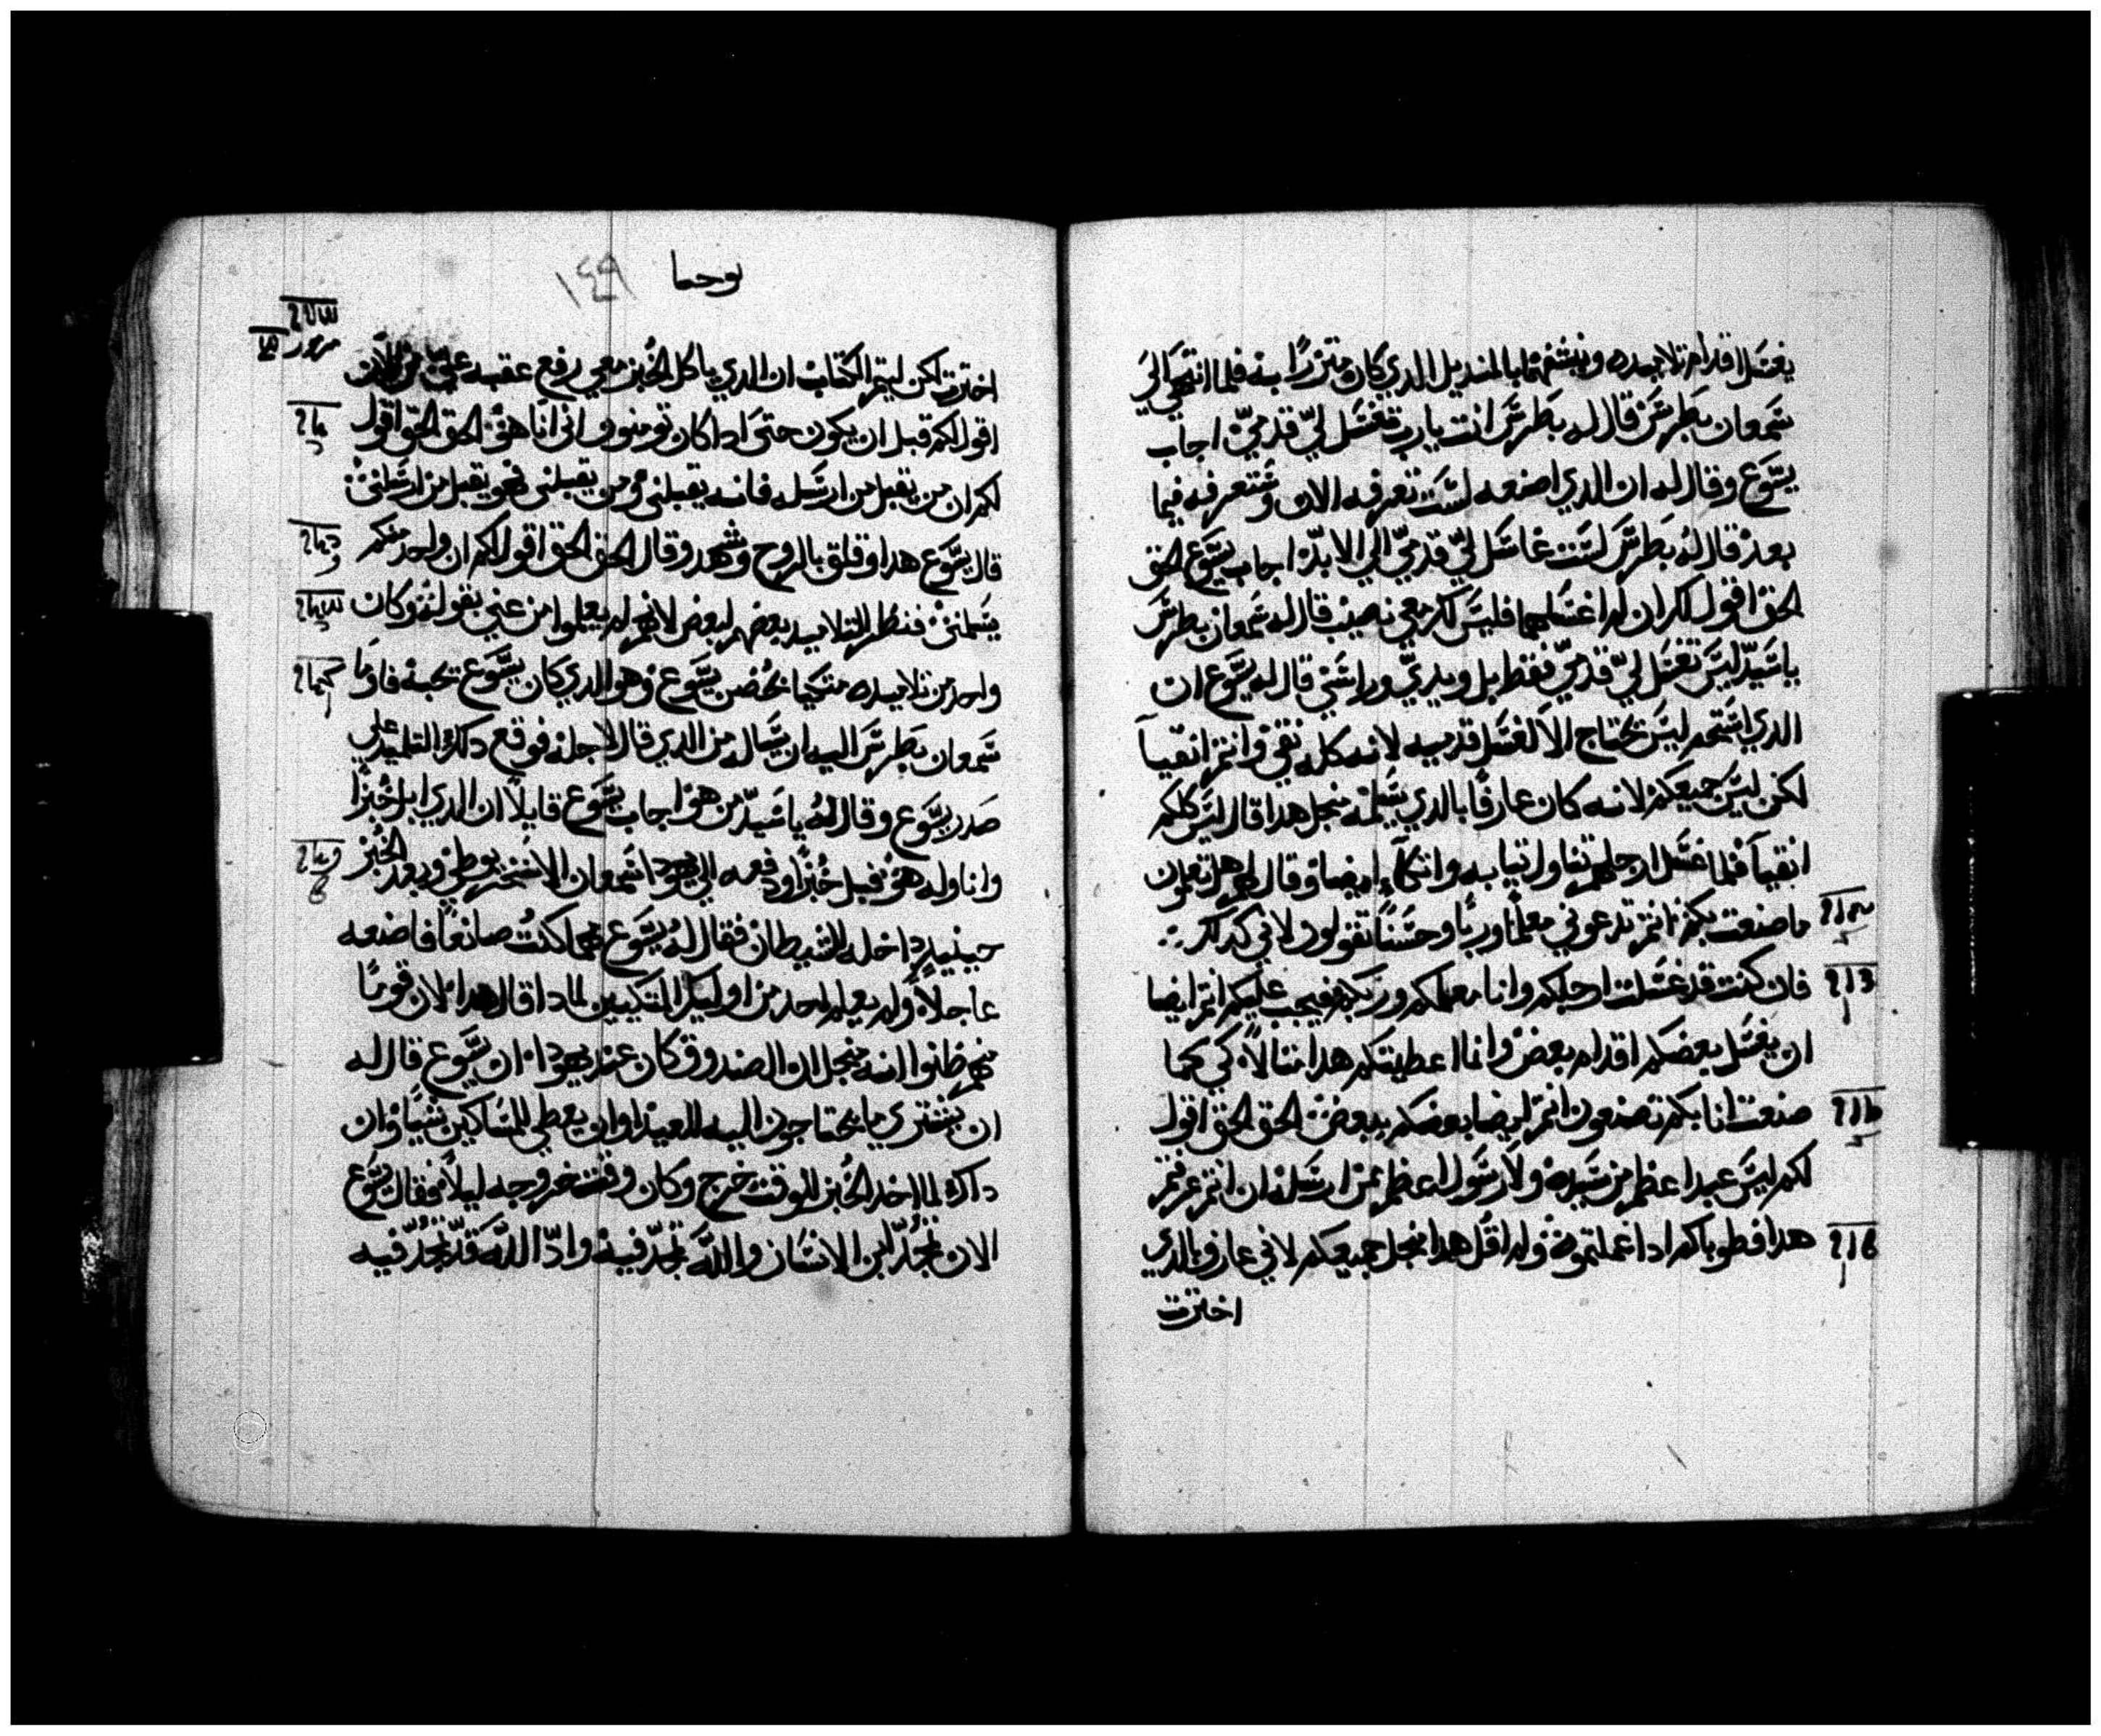 يغسل اقدام تلاميده وينشفها بالمنديل الدي كان متزرًا به فلما انتهي الي
سمعان بطرس قال له بطرس انت يارب تغسل لي قدمي اجاب
يسوع وقال له ان الدي اصنعه لست تعرفه الان وستعرفه فيما
بعد قال له بطرس لست غاسل لي قدمي الي الابد اجاب يسوع الحق
الحق اقول لك ان لم اغسلهما فليس لك معي نصيب قال له سمعان بطرس
ياسيد ليس تغسل لي قدمي فقط بل ويدي وراسي قال له يسوع ان
الدي استحم ليس يحتاج الا لغسل قدميه لانه كله نقي وانتم انقيا
لكن ليس جميعكم لانه كان عارفًا بالدي يسلمه منجل هدا قال ليس كلكم
انقيا فلما غسل ارجلهم تناول تيابه واتكا ايضا وقال لهم هل تعلمون
ما صنعت بكم انتم تدعوني معلمًا وربًا وحسنًا تقولون لاني كدلك
فان كنت قد غسلت ارجلكم وانا معلمكم وربكم فيجب عليكم انتم ايضا
ان يغسل بعضكم اقدام بعض وانا اعطيتكم هدا متالاً كي كما
صنعت انا بكم تصنعون انتم ايضا بعضكم ببعض الحق الحق اقول
لكم ليس عبدا عظم من سيده ولا رسول اعظم ممن ارسله ان انتم عرفتم
هدا فطوباكم ادا عملتموه ولم اقل هدا منجل جميعكم لاني عارف بالدي
اخترت
يوحنا
١٤٩
اخترت لكن ليتم الكتاب ان الدي ياكل الخبز معي رفع عقبه علي من الان
اقول لكم قبل ان يكون حتي ادا كان تومنوا اني انا هو الحق الحق اقول
لكم ان من يقبل من ارسله فانه يقبلني ومن يقبلني فهو يقبل من ارسلني
قال يسوع هدا وقلق بالروح وشهد وقال الحق الحق اقول لكم ان واحد منكم
يسلمني فنظر التلاميد بعضهم لبعض لانهم لم يعلموا من عني بقوله وكان
واحد من تلاميده متكيا بحضن يسوع وهو الدي كان يسوع تحبه فاوما
سمعان بطرس اليه ان يساله من الدي قال لاجله فوقع دلك التلميد علي
صدر يسوع وقال له ياسيد من هو اجاب يسوع قايلاً ان الدي ابل خبزًا
واناوله هو فبل خبزًا ودفعه الي يهودا سمعان الاسخريوطي وبعد الخبز
حينيد داخله الشيطان فقال له يسوع مهما كنت صانعًا فاصنعه
عاجلاً ولم يعلم احد من اوليك المتكيين لمادا قال هدا لان قومًا
منهم ظنوا انه منجل ان الصندوق كان عند يهودا ان يسوع قال له
ان يشتري ما يحتاجون اليه للعيد او ان يعطي للمساكين شيًا وان
داك لما اخد الخبز للوقت خرج وكان وقت خروجه ليلاً فقال يسوع
الان تمجد ابن الانسان والله تمجد فيه وادا الله قد تمجد فيه